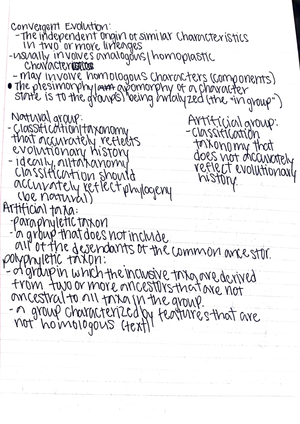 Convergent Evolution:
- The independent origin of similar characteristics
in two or more lineages
- usually involves analogous/homoplastic
characteristics
- may involve homologous characters (components)
• The plesimorphy/apomorphy of a character
state is to the group(s) being analyzed (the "in group")
Natural group:
- classification/taxonomy
that accurately reflects
evolutionary history
- ideally, all taxonomy
classification should
accurately reflect phylogeny
(be natural)
Artificial group:
- classification
taxonomy that
does not accurately
reflect evolutionary
history.
Artificial taxa:
- paraphyletic taxon
- a group that does not include
all of the desendants of the common ancestor.
polyphyletic taxon:
- a group in which the inclusive taxa are derived
from two or more ancestors that are not
ancestral to all taxa in the group.
- a group characterized by features that are
not homologous (text)